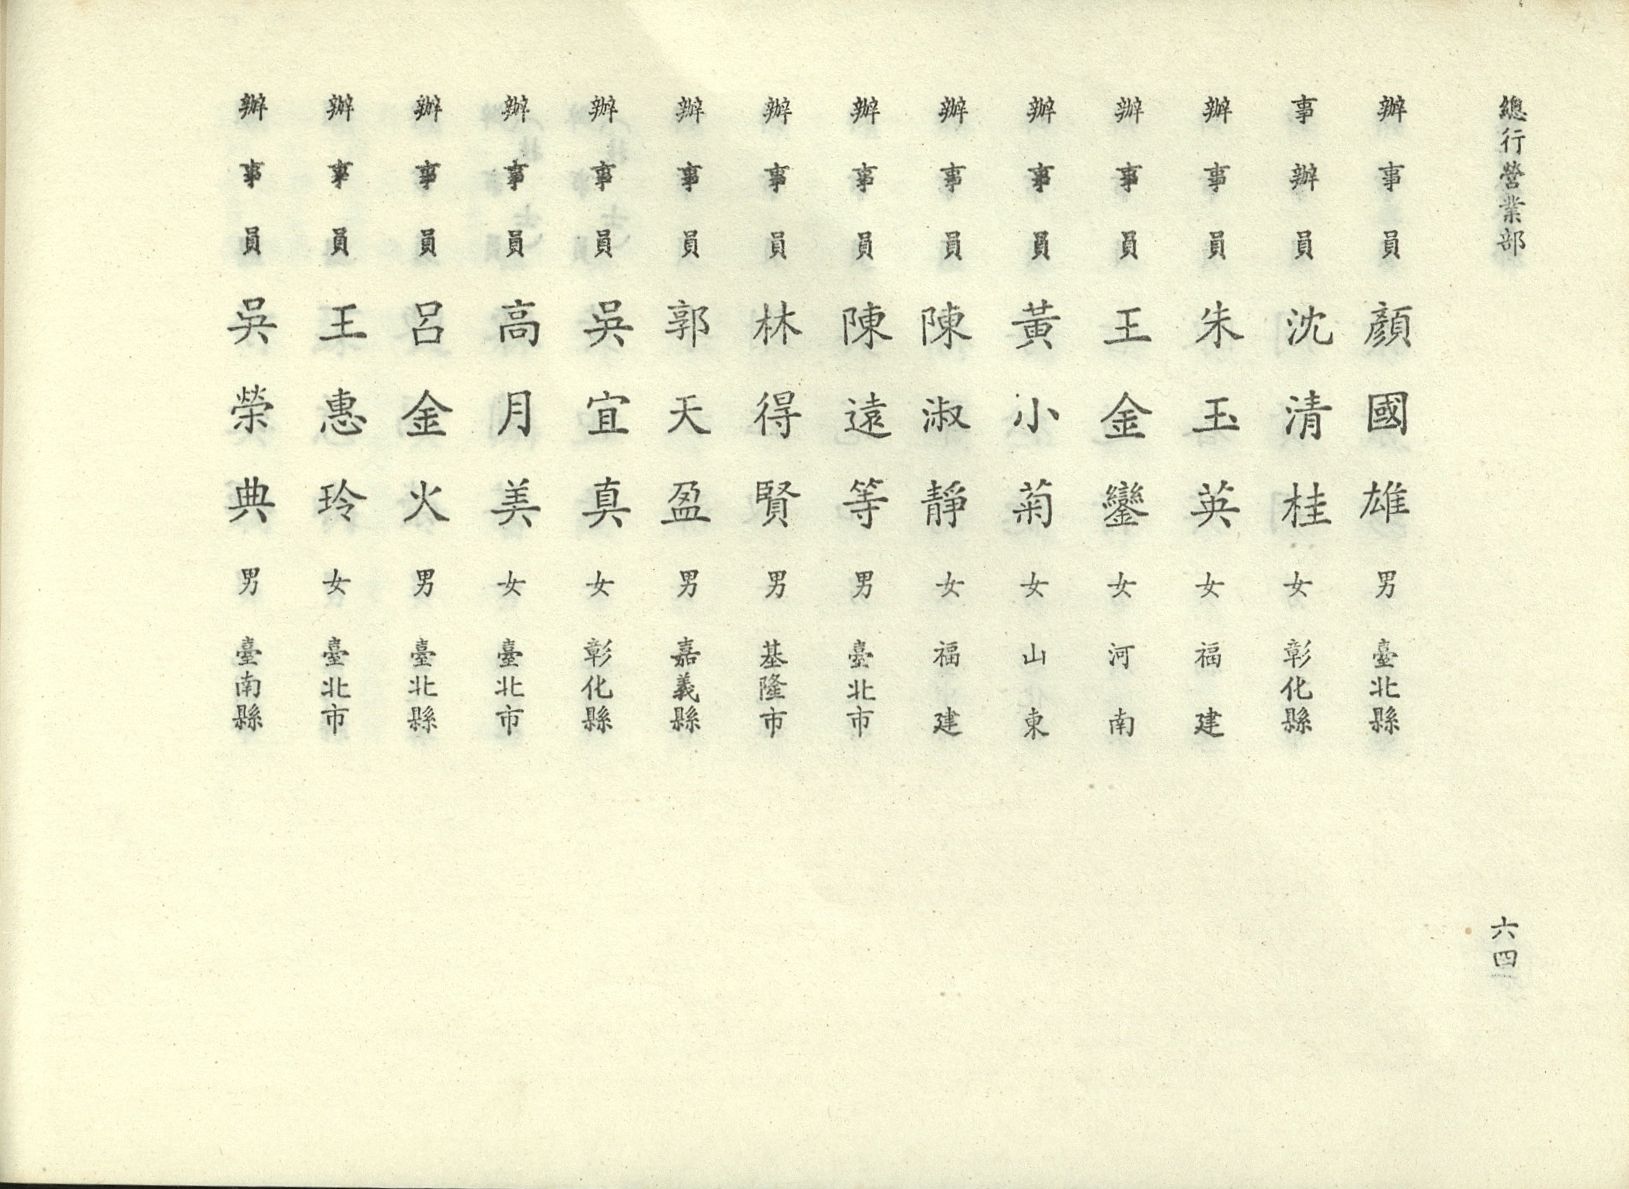 總行營業部
辦事員顏國雄男臺北縣
事辦員沈清桂女彰化縣
辦事員朱玉英女福建
辦事員王金鑾女河南
辦事員黃小菊女山東
辦事員陳淑靜女福建
辦事員陳遠等男臺北市
辦事員林得賢男基隆市
辦事員郭天盈男嘉義縣
辦事員吳宜真女彰化縣
辦事員高月美女臺北市
辦事員呂金火男臺北縣
辦事員王惠玲女臺北市
辦事員吳榮典男臺南縣
六四